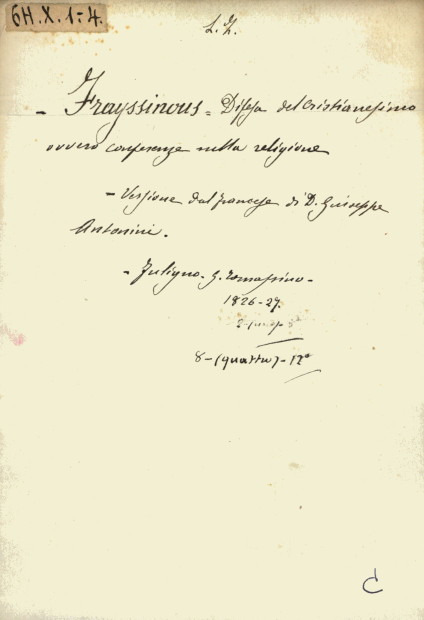 6H.X.1-4.
L. Z.
- Frayssinous = Difesa del Cristianesimo
ovvero conferenze sulla religione
- Versione dal francese di D. Giuseppe
Antonini.
- Fuligno. G. Tomassino -
1826-27.
8-(quattro)-12°